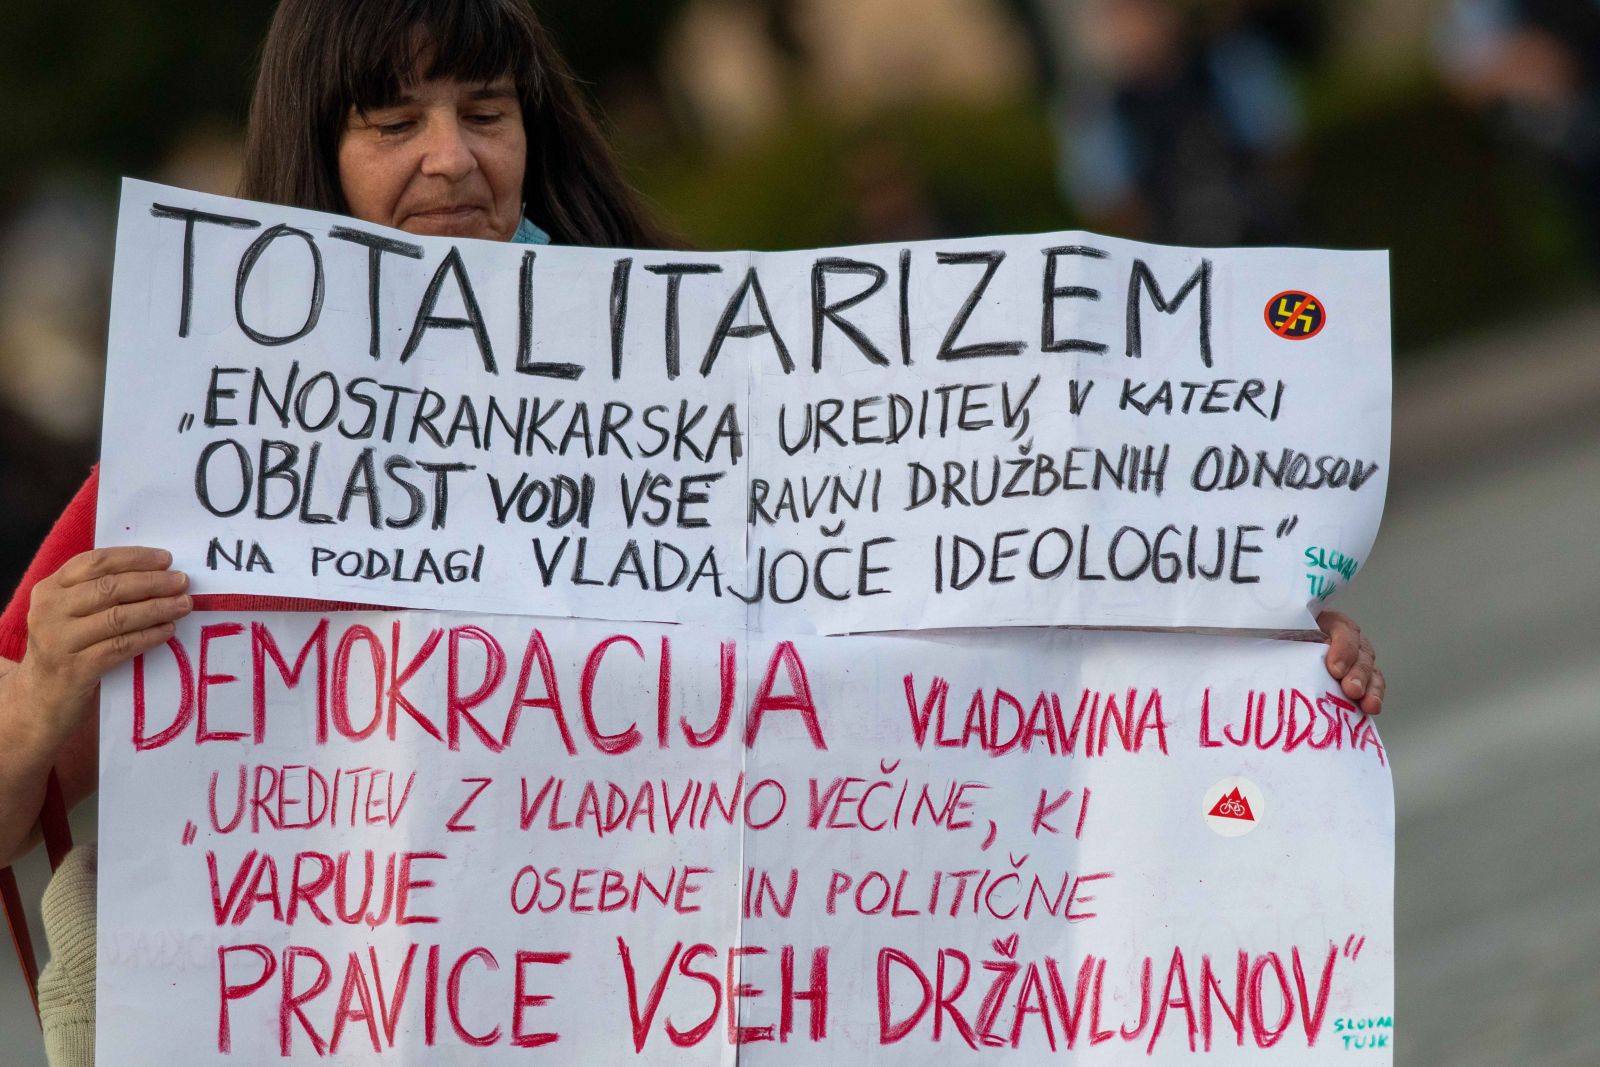 TOTALITARIZEM
„ENOSTRANKARSKA UREDITEV, V KATERI
OBLAST VODI VSE RAVNI DRUŽBENIH ODNOSOV
NA PODLAGI VLADAJOČE IDEOLOGIJE”
SLOVAR
TUJK
DEMOKRACIJA VLADAVINA LJUDSTVA
„UREDITEV Z VLADAVINO VEČINE, KI
VARUJE OSEBNE IN POLITIČNE
PRAVICE VSEH DRŽAVLJANOV”
SLOVAR
TUJK